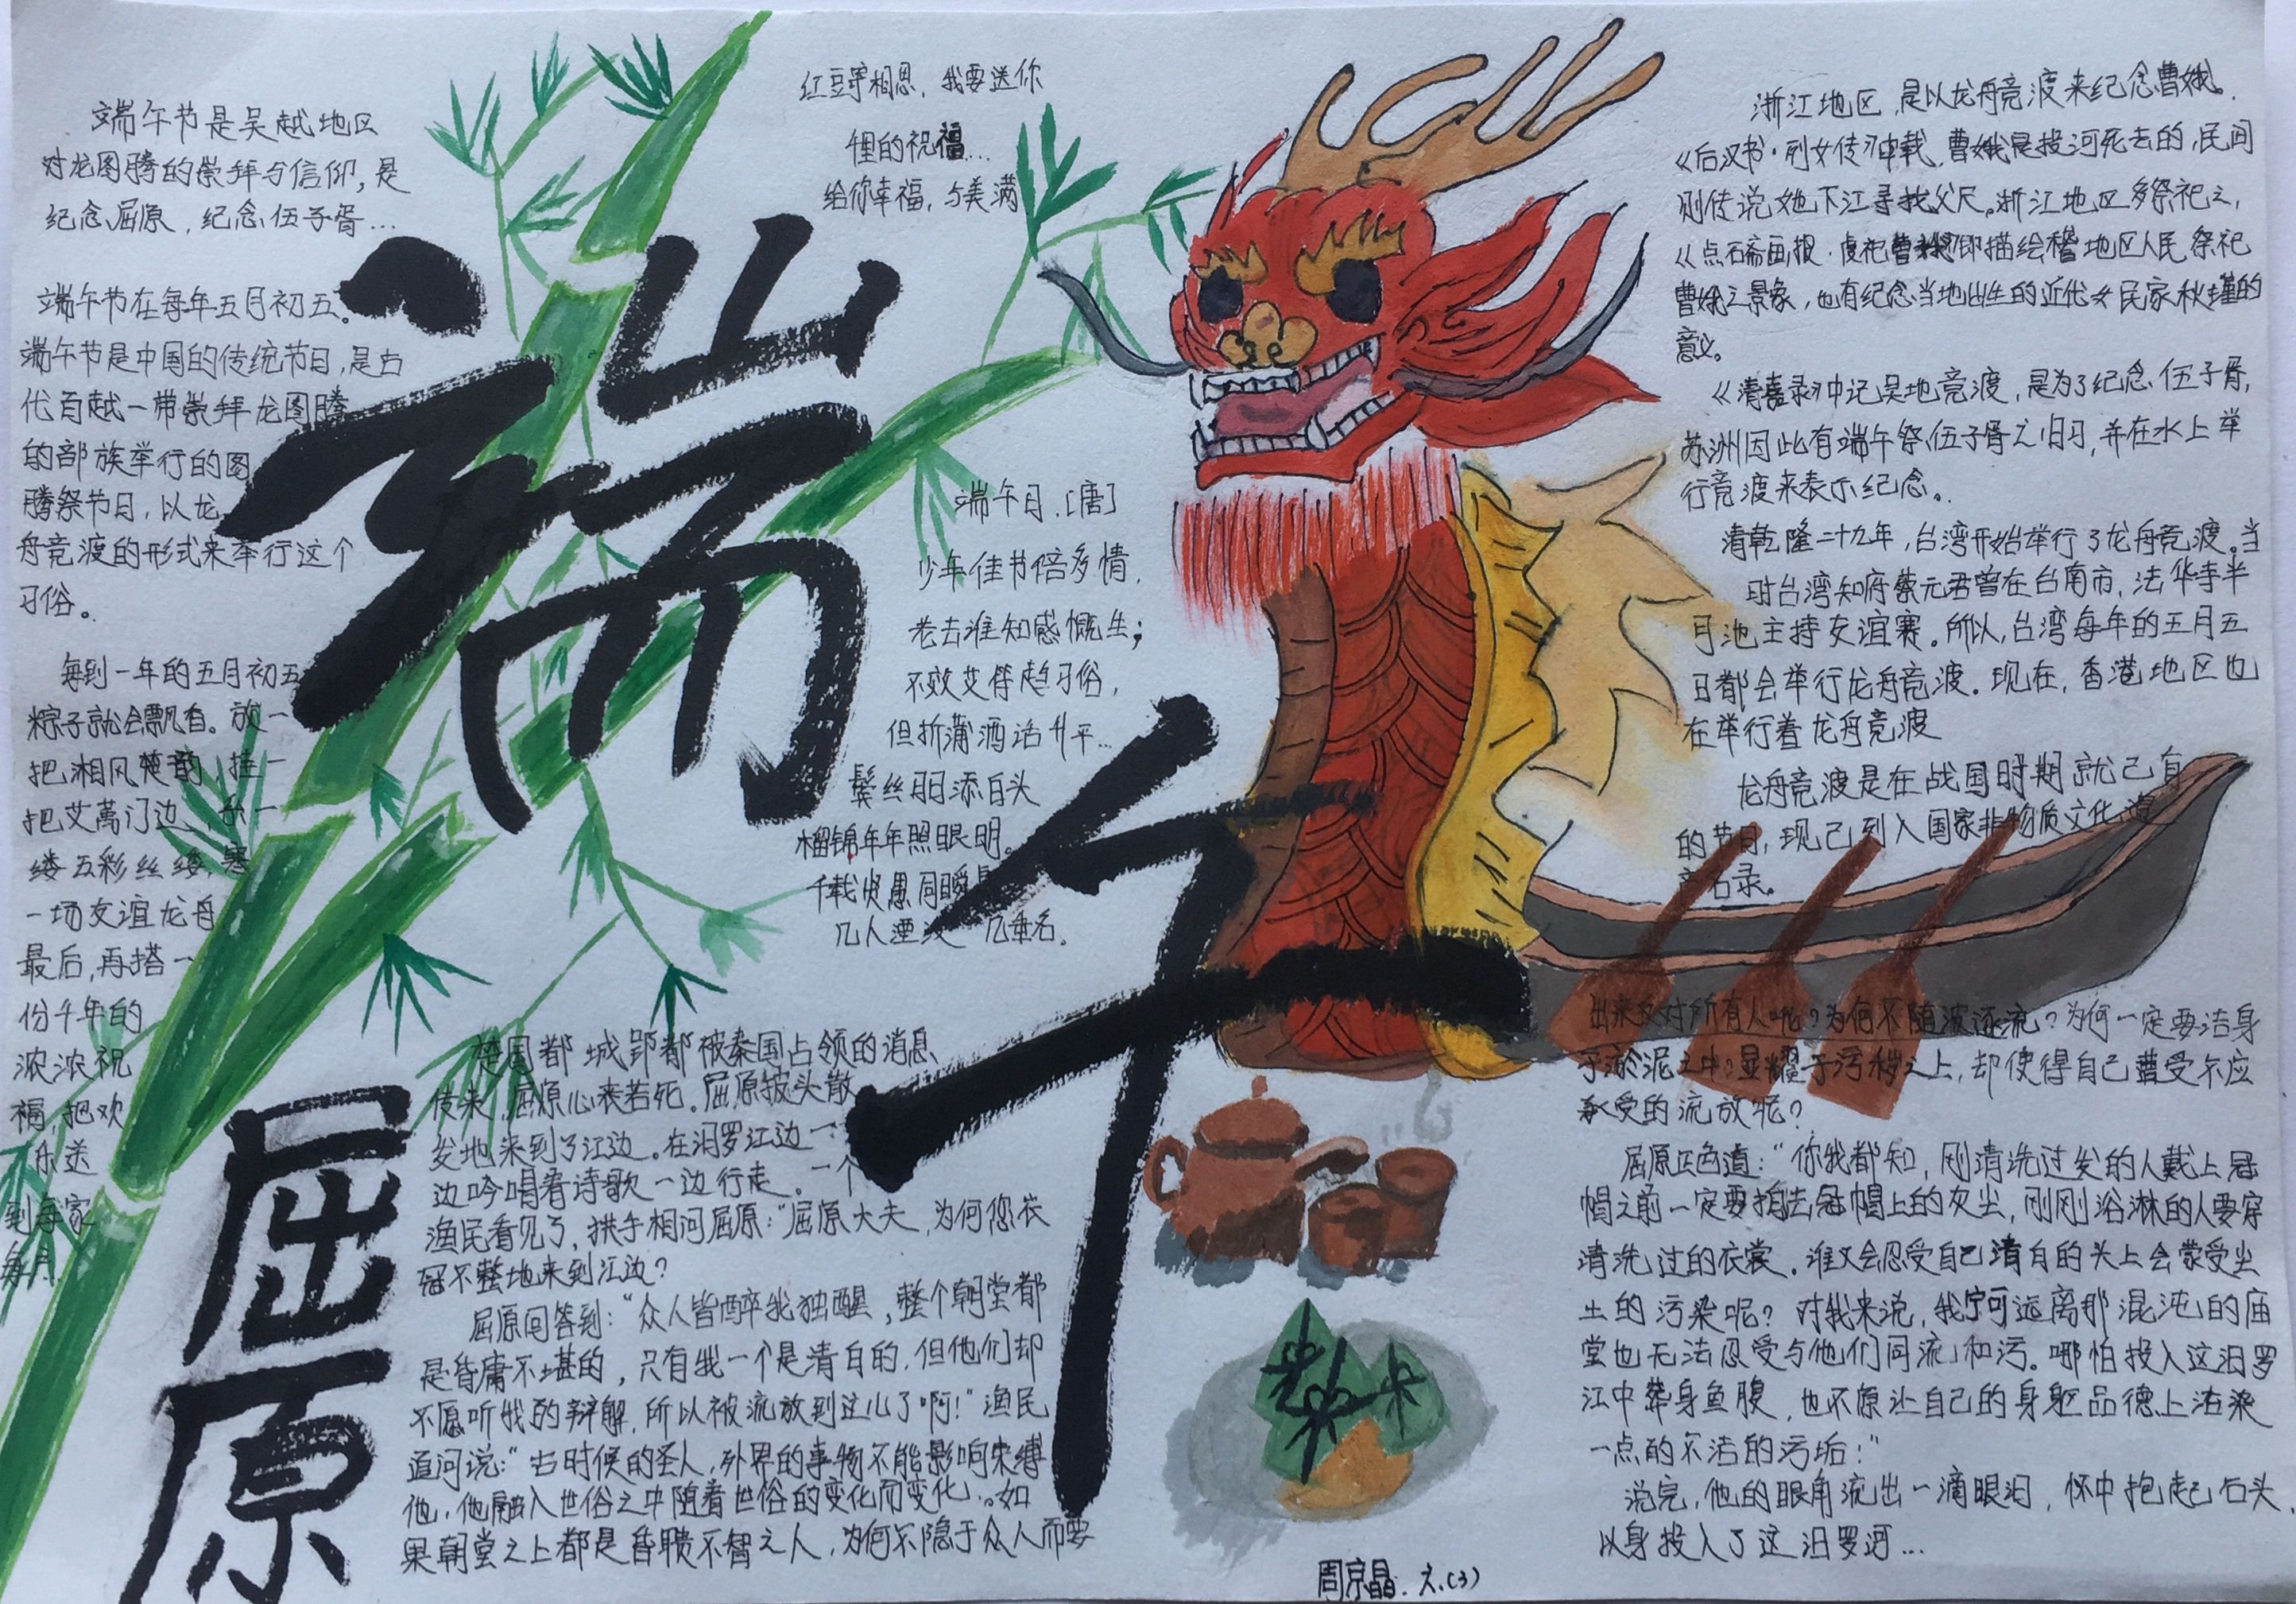 端午节是吴越地区
对龙图腾的崇拜与信仰,是
纪念屈原,纪念伍子胥…
端午节在每年五月初五。
端午节是中国的传统节日,是古
代百越一带崇拜龙图腾
的部族举行的图
腾祭节日,以龙
舟竞渡的形式来举行这个
习俗。
每到一年的五月初五
粽子就会飘香。放一
把湘风楚韵,挂一
把艾蒿门边,
缕五彩丝缕,赛
一场友谊龙舟
最后,再搭一
份千年的
浓浓祝
福,把欢
乐送
到每家
每户
端午
屈原
红豆寄相思,我要送你
的祝福…
给你幸福,与美满
端午日.[唐]
少年佳节倍多情,
老去谁知感慨生;
不效艾符趋习俗,
但折蒲酒话升平…
鬓丝日日添白头
榴锦年年照眼明。
千载贤愚同瞬
几人湮没几垂名。
楚国都城郢都被秦国占领的消息
传来,屈原心来若死。屈原披头散
发地来到了江边。在汨罗江边一
边吟唱着诗歌一边行走。一个
渔民看见了,拱手相问屈原:“屈原大夫,为何您衣
冠不整地来到江边?
屈原回答到:“众人皆醉我独醒,整个朝堂都
是昏庸不堪的,只有我一个是清白的,但他们却
不愿听我的辩解,所以被流放到这儿了啊!”渔民
追问说:“古时候的圣人,外界的事物不能影响束缚
他,他融入世俗之中随着世俗的变化而变化…如
果朝堂之上都是昏聩不智之人,为何不隐于众人而要
浙江地区,是以龙舟竞渡来纪念曹娥。
《后汉书·列女传》中载,曹娥是投河死去的,民间
则传说她下江寻找父尺。浙江地区多祭祀之,
《点石斋画报·虔祀曹娥》即描绘稽地区人民祭祀
曹娥之景象,也有纪念当地出生的近代女民家秋瑾的
意义。
《清嘉录》中记吴地竞渡,是为了纪念伍子胥,
苏洲因此有端午祭伍子胥之旧习,并在水上举
行竞渡来表示纪念。
清乾隆二十九年,台湾开始举行了龙舟竞渡。当
时台湾知府蒋元君曾在台南市,法华寺半
月池主持友谊赛。所以,台湾每年的五月五
日都会举行龙舟竞渡。现在,香港地区也
在举行着龙舟竞渡
龙舟竞渡是在战国时期就已有
的节日,现已列入国家非物质文化遗
产名录。
出来反对所有人呢?为何不随波逐流?为何一定要洁身
于淤泥之中?显耀于污秽之上,却使得自己遭受不应
承受的流放呢?
屈原正色道:“你我都知,刚清洗过发的人戴上冠
帽之前一定要掐去冠帽上的灰尘,刚刚浴淋的人要穿
清洗过的衣裳。谁又会忍受自己清白的头上会蒙受尘
土的污染呢?对我来说,我宁可远离那混沌的庙
堂也无法忍受与他们同流和污。哪怕投入这汨罗
江中葬身鱼腹,也不愿让自己的身躯品德上沾染
一点的不洁的污垢!”
说完,他的眼角流出一滴眼泪,怀中抱起石头,
以身投入了这汨罗河…
周京晶.六.(3)